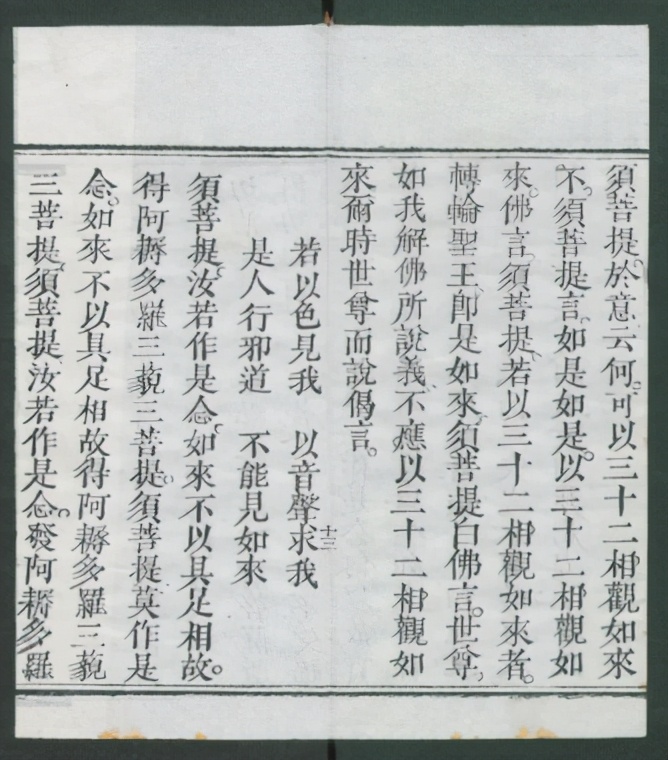 須菩提於意云何可以三十二相觀如來
不須菩提言如是如是以三十二相觀如
來佛言須菩提若以三十二相觀如來者
轉輪聖王卽是如來須菩提白佛言世尊
如我解佛所說義不應以三十二相觀如
來爾時世尊而說偈言
若以色見我　以音聲求我
十三
是人行邪道　不能見如來
須菩提汝若作是念如來不以具足相故
得阿耨多羅三藐三菩提須菩提莫作是
念如來不以具足相故得阿耨多羅三藐
三菩提須菩提汝若作是念發阿耨多羅